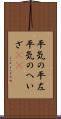 平気の平左
平気のへい
ざ